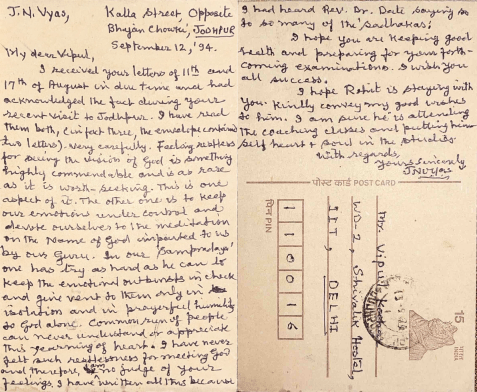 J.N. Vyas,
Kalla Street, Opposite
Bhajan Chowki, JODHPUR
September 12, '94.
My dear Vipul,
I received your letters of 11th and
17th of August in due time and had
acknowledged the fact during your
recent visit to Jodhpur. I have read
them both, (in fact three, the envelope contained
two letters). very carefully. Feeling restless
for seeing the vision of God is something
highly commendable and is as rare
as it is worth-seeking. This is one
aspect of it. The other one is to keep
our emotion under control and
devote ourselves to the meditation
on the Name of God imparted to us
by our Guru. In our 'Sampradaya'
one has try as hard as he can to
keep the emotional outbursts in check
and give vent to them only in
isolation and in prayerful humility
to God alone. Common run of people
can never understand or appreciate
this yearning of heart. I have never
felt such restlessness for meeting God
and therefore, am no judge of your
feelings. I have written all this because
I had heard Rev. Dr. Date saying so
to so many of the 'Sadhakas'.
I hope you are keeping good
health and preparing for your forth-
coming examinations. I wish you
all success.
I hope Rohit is staying with
you. Kindly convey my good wishes
to him. I am sure he is attending
the coaching classes and putting him
self heart & soul in the studies.
With regards,
Yours Sincerely
JNVyas
पोस्ट कार्ड POST CARD
15
भारत
INDIA
Mr. Vipul
WD-2, Shivalik Hostel,
IIT, DELHI
पिन PIN
110016